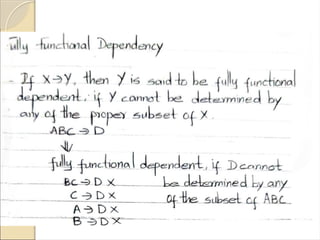 Fully Functional Dependency
- If X→Y, then Y is said to be fully functional
dependent, if Y cannot be determined by
any of the proper subset of X.
ABC → D
⇓
fully functional dependent, if D cannot
BC → D × be determined by any
C → D × of the subset of ABC.
A → D ×
B → D ×